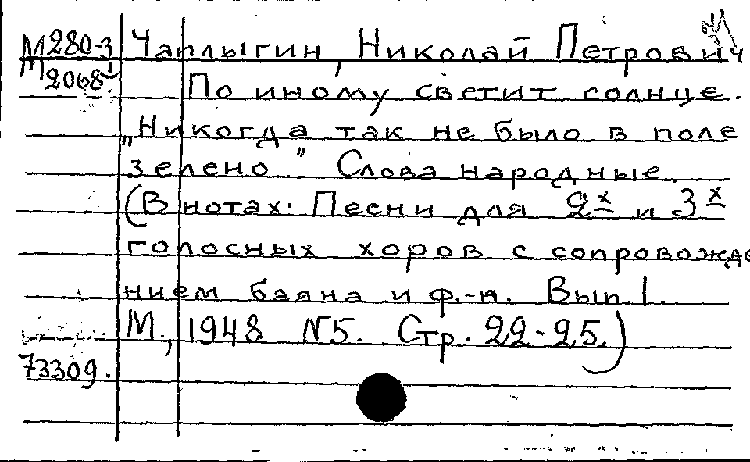 М280-3 Чаплыгин, Николай Петрович
М2068 По иному светит солнце.
„Никогда так не было в поле
зелено" Слова народные.
(В нотах: Песни для 2х и 3х
голосных хоров с сопровожде
нием баяна и ф.-п. Вып 1.
М., 1948 N5. Стр. 22-25.)
73309.